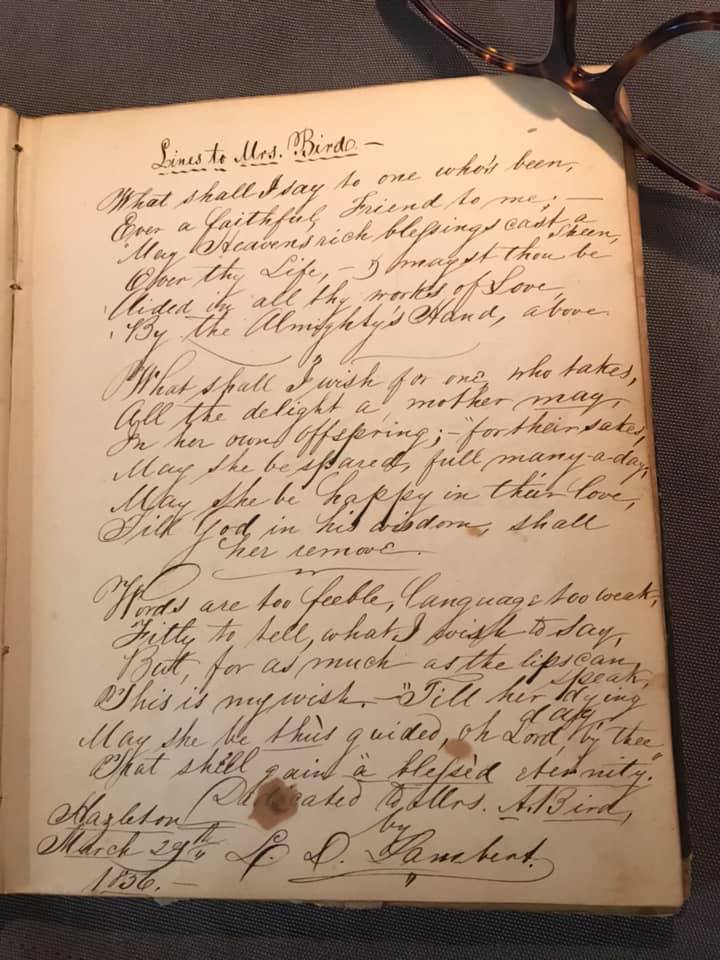 Lines to Mrs. Bird —
What shall I say to one who's been,
Ever a faithful Friend to me; —
May Heavens rich blessings cast a
sheen,
Over thy Life, — & mayst thou be
Aided in all thy works of Love,
By the Almighty's Hand, above
"What shall I wish for one, who takes,
All the delight a mother may,
In her own offspring; — "for their sakes,
May she be spared, full many-a-day,
May she be happy in their love,
Till God in his wisdom, shall
her remove.
Words are too feeble, language too weak,
Fitly to tell, what I wish to say,
But, for as much as the lips can
speak,
This is my wish. — "Till her dying
day
May she be thus guided, oh Lord, by thee"
That shell gain "a blessèd eternity.
Dedicated to Mrs. A. Bird,
by
L. D. Lambert.
Hazleton
March 29th
1856. —